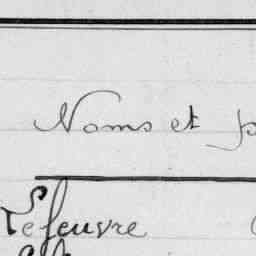 Noms et p
Lefeuvre